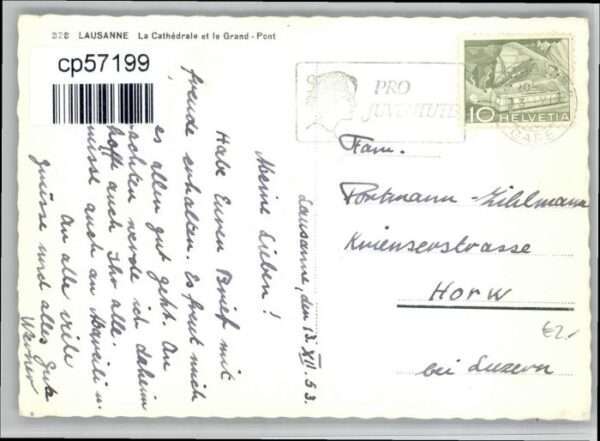 LAUSANNE La Cathédrale et le Grand-Pont
cp57199
Lausanne, den 13. XII. 53.
Meine Lieben!
Habe Euren Brief mit
freude erhalten. Es freut mich
es allen gut geht. An
achten werde ich daheim
hoff auch Ihr alle.
auch an
An alle viele
grüsse und alles Gute
Werner
PRO
JUVENTUTE
10 HELVETIA
Fam.
Portmann-Zihlmann
Krienserstrasse
Horw
bei Luzern
€2.-